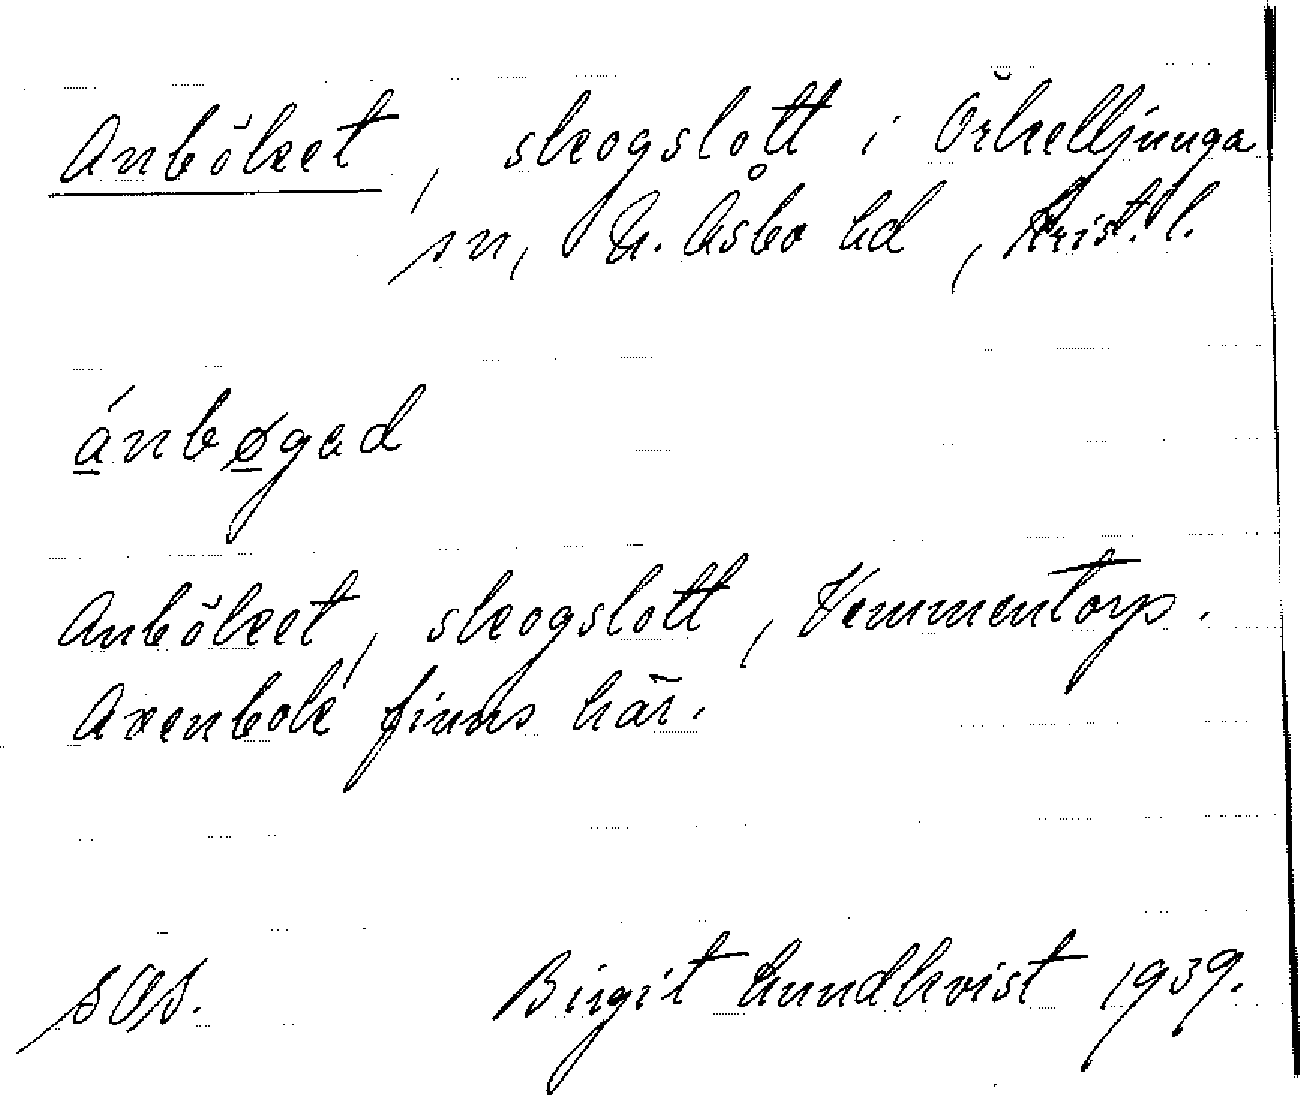 Anböket, skogslott i Örkelljunga
sn, N. Åsbo hd, Krist. l.
ánbøgad
Anböket, skogslott, Vemmentorp.
Axenbok finns här.
SOS. Birgit Lundkvist 1939.